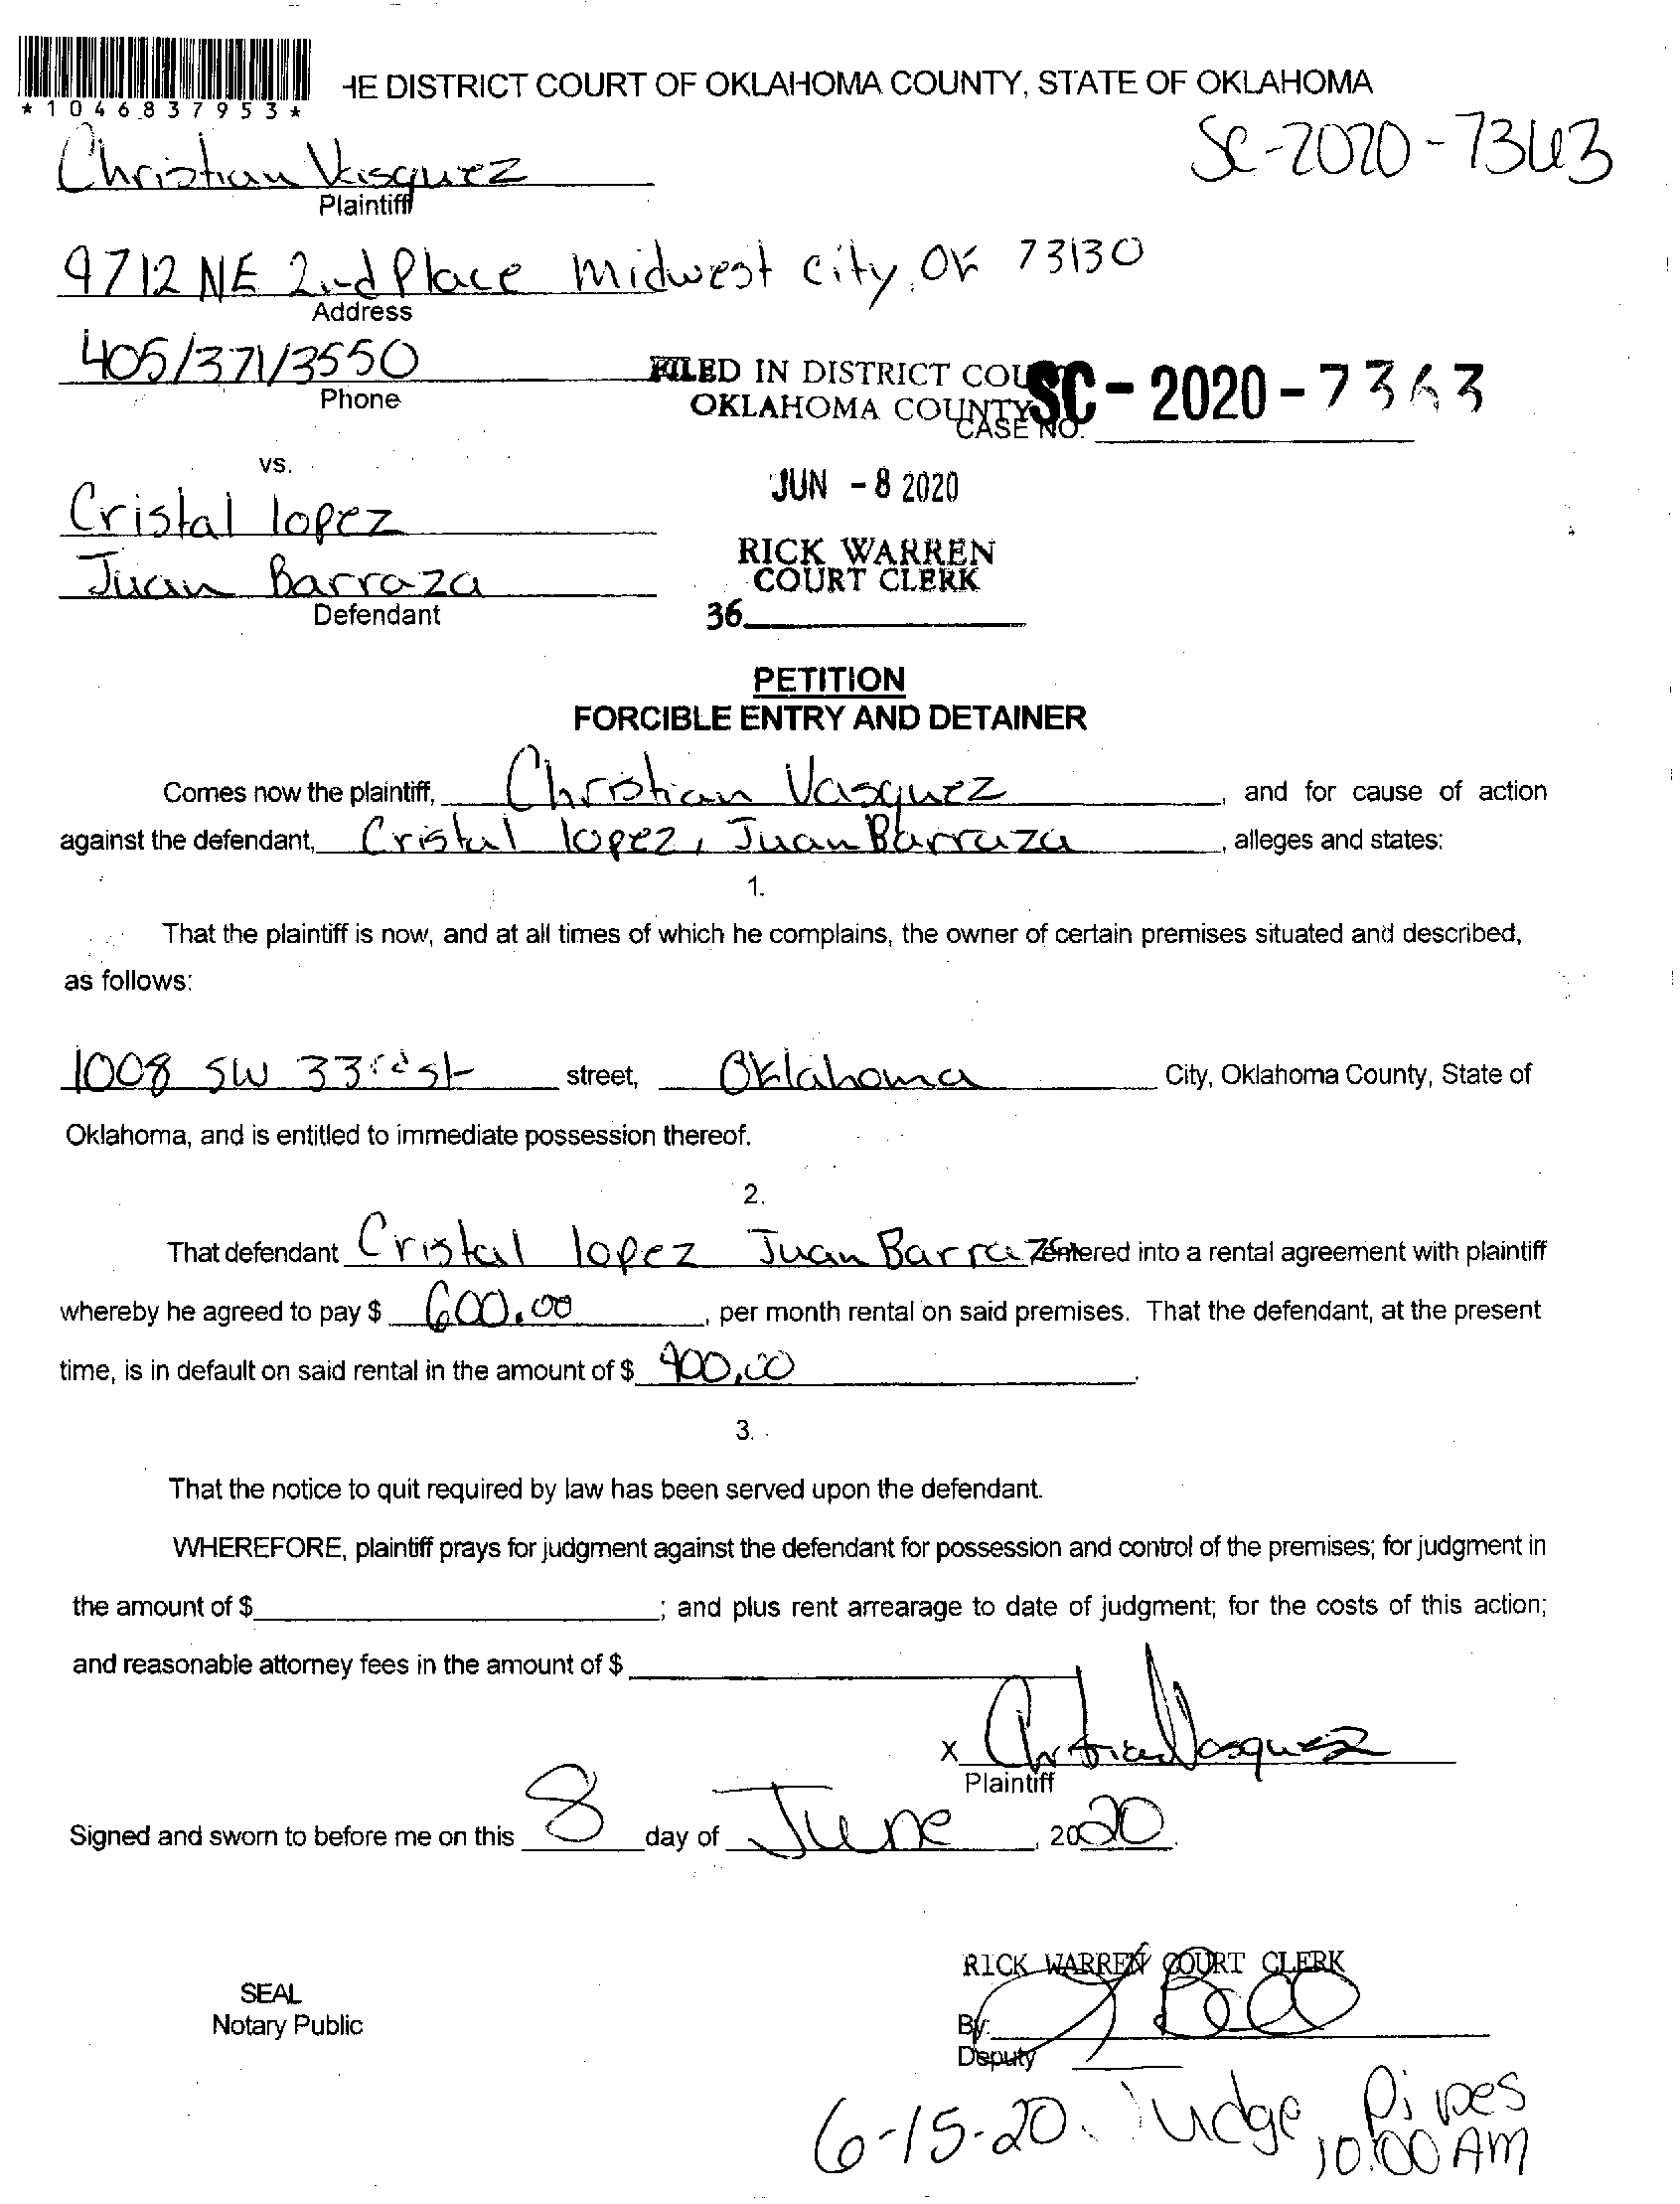 *1046837953*
HE DISTRICT COURT OF OKLAHOMA COUNTY, STATE OF OKLAHOMA
SC-2020-7363
Christian Vasquez
Plaintiff
9712 NE 2nd Place Midwest city, OK 73130
Address
405/371/3550
Phone
FILED IN DISTRICT COU
OKLAHOMA COUNTY
SC-2020-7363
CASE NO.
vs.
JUN -8 2020
Cristal lopez
Juan Barraza
Defendant
RICK WARREN
COURT CLERK
36
PETITION
FORCIBLE ENTRY AND DETAINER
Comes now the plaintiff, Christian Vasquez, and for cause of action
against the defendant, Cristal lopez, Juan Barraza, alleges and states:
1.
That the plaintiff is now, and at all times of which he complains, the owner of certain premises situated and described,
as follows:
1008 SW 33rd st street, Oklahoma City, Oklahoma County, State of
Oklahoma, and is entitled to immediate possession thereof.
2.
That defendant Cristal lopez Juan Barraza entered into a rental agreement with plaintiff
whereby he agreed to pay $ 600.00, per month rental on said premises. That the defendant, at the present
time, is in default on said rental in the amount of $ 900.00.
3.
That the notice to quit required by law has been served upon the defendant.
WHEREFORE, plaintiff prays for judgment against the defendant for possession and control of the premises; for judgment in
the amount of $ ; and plus rent arrearage to date of judgment; for the costs of this action;
and reasonable attorney fees in the amount of $
X Christian Vasquez
Plaintiff
Signed and sworn to before me on this 8 day of June, 2020.
RICK WARREN COURT CLERK
SEAL
Notary Public
By:
Deputy
6-15-20. Judge Pipes
10:00 AM